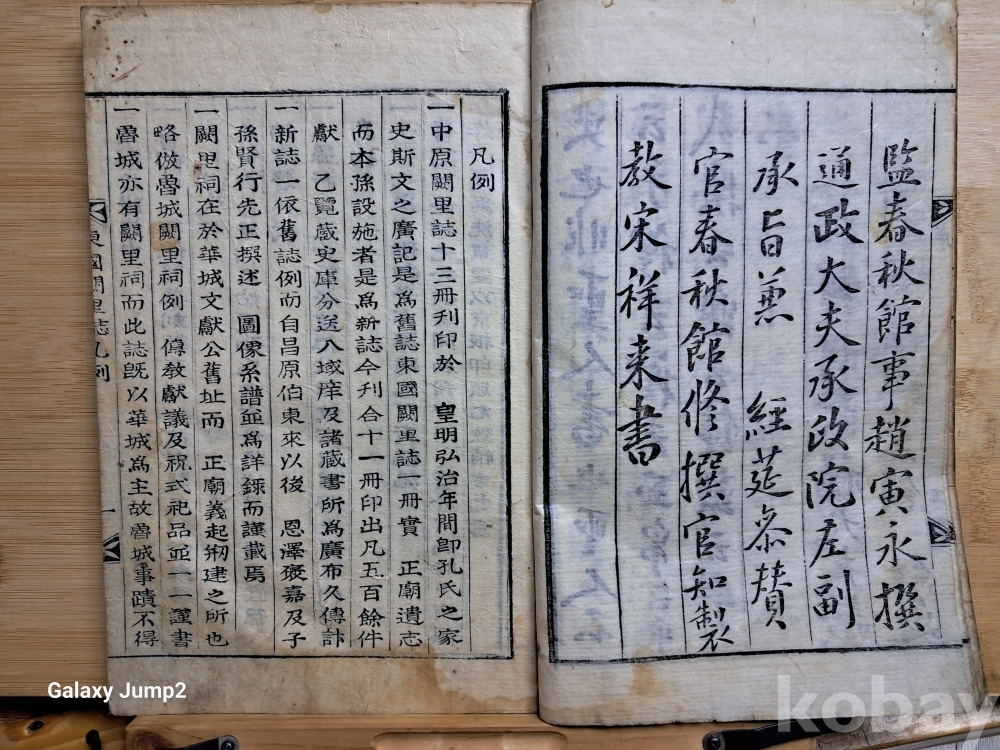 監春秋館事趙寅永撰
通政大夫承政院左副
承旨兼 經筵參贊
官春秋館修撰官知製
教宋祥来書
凡例
一中原闕里誌十三冊刊印於 皇明弘治年間卽孔氏之家
史斯文之廣記是爲舊誌東國闕里誌一冊實 正廟遺志
而本孫設施者是爲新誌今刊合十一冊印出凡五百餘件
獻 乙覽藏史庫分送八域庠及諸藏書所爲廣布久傳計
一新誌一依舊誌例而自昌原伯東來以後 恩澤褒嘉及子
孫賢行先正撰述 圖像系譜並爲詳錄而謹載焉
一闕里祠在於華城文獻公舊址而 正廟義起刱建之所也
略倣魯城闕里祠例 傳教獻議及祝式祀品並一一謹書
一魯城亦有闕里祠而此誌旣以華城爲主故魯城事蹟不得
東國闕里誌凡例
一
Galaxy Jump2
kobay